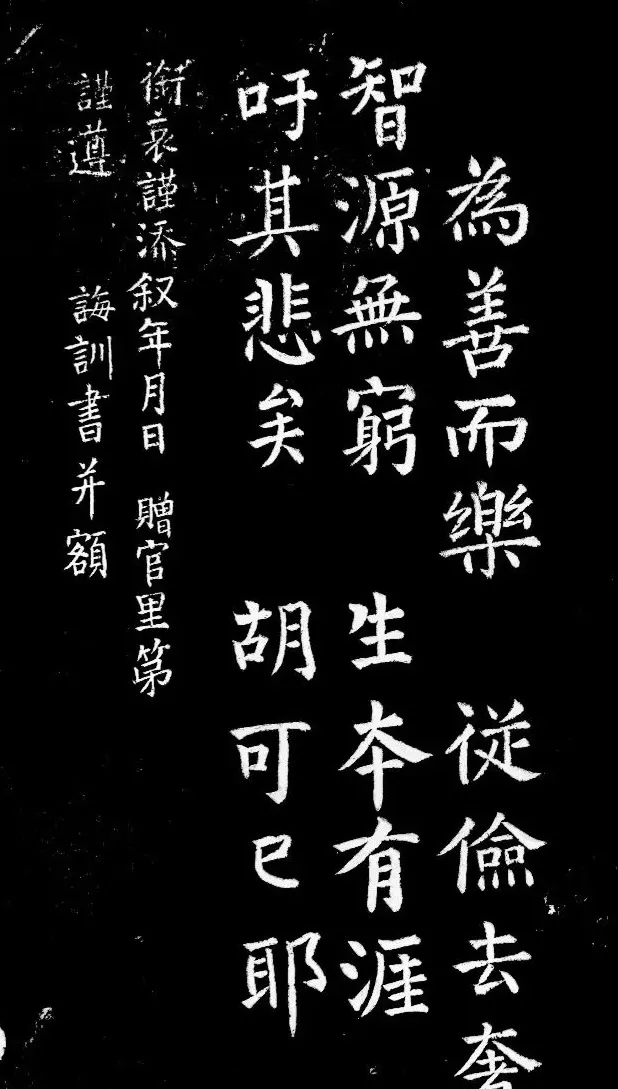 為善而樂 從儉去奢
智源無窮 生夲有涯
吁其悲矣 胡可已耶
銜哀謹添叙年月日 贈官里第
謹遵 誨訓書并額